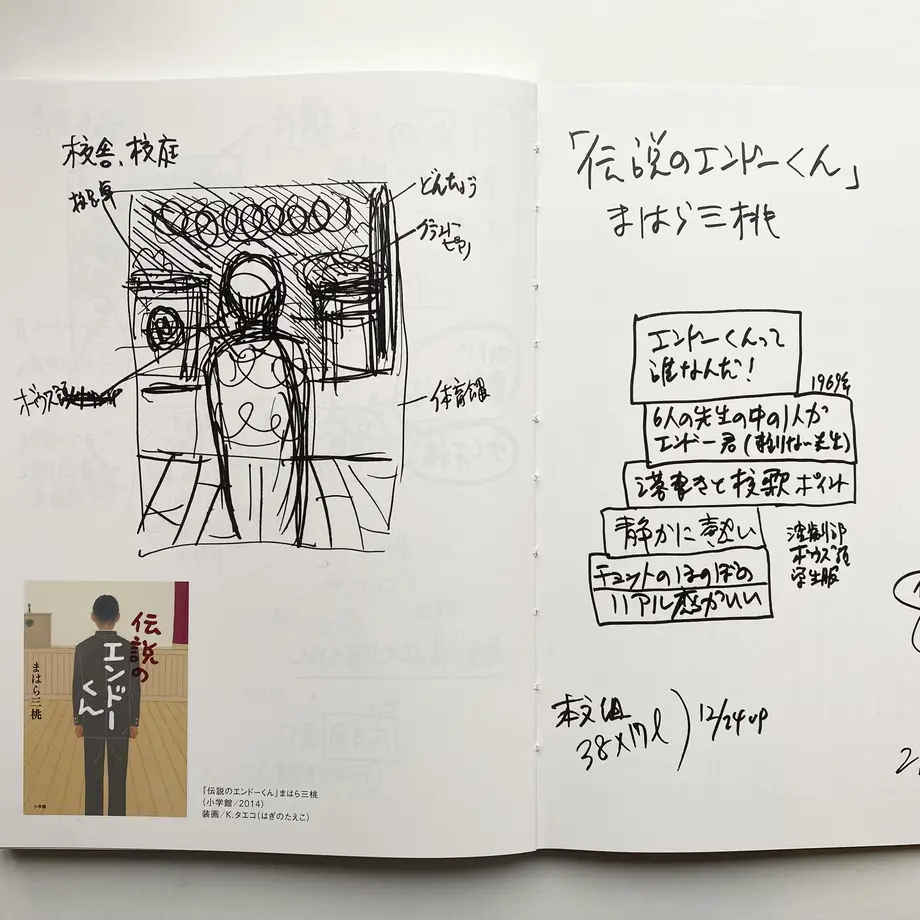 校舎、校庭
どんちょう
グランド
ピアノ
ボウズ頭
体育館
伝説の
エンドー
くん
まはら三桃
小学館
『伝説のエンドーくん』まはら三桃
(小学館/2014)
装画/K.タエコ(はぎのたえこ)
「伝説のエンドーくん」
まはら三桃
エンドーくんって
誰なんだ!
1969年
6人の先生の中の1人が
エンドー君(頼りない先生)
落書きと校歌ポイント
静かに熱い
演劇部
ボウズ頭
学生服
チョットのほのぼの
リアル感がいい
本文組
38×17ℓ
12/24up